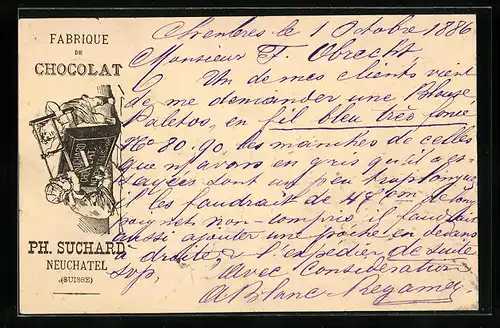 FABRIQUE
DE
CHOCOLAT
PH. SUCHARD
NEUCHATEL
(SUISSE)
le 1 Octobre 1886
Monsieur F. Obrecht,
Un de mes clients vient
de me demander une Blouse
Paletos, en fil bleu très foncé
No 80.90, les manches de celles
que n/ avons en gris qu'il a
dont un peu trop
il les faudrait de 47 cm de long
poignet non-compris il faudrait
aussi ajouter une poche en dedans
à droite, l'expédier de suite
svp, Avec Considération
ABlanc Regamey